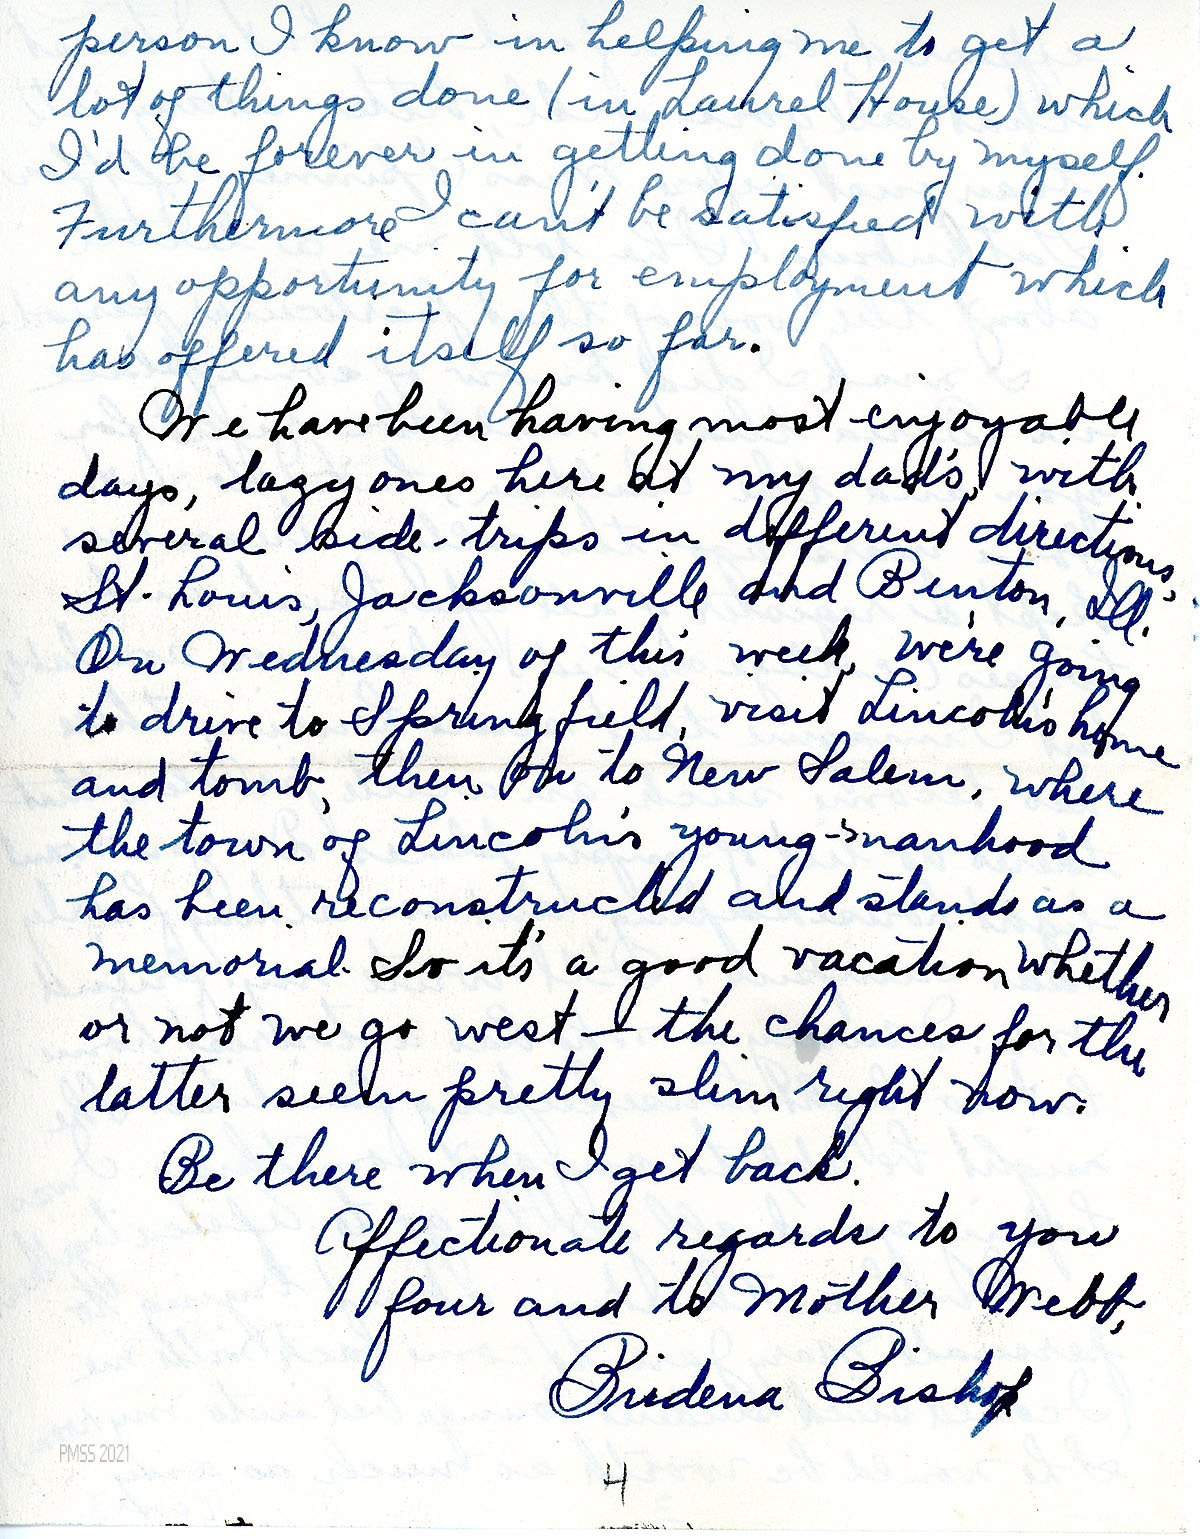 person I know in helping me to get a
lot of things done (in Laurel House) which
I'd be forever in getting done by myself.
Furthermore I can't be satisfied with
any opportunity for employment which
has offered itself so far.
We have been having most enjoyable
days, lazy ones here at my dad's, with
several side-trips in different directions,
St. Louis, Jacksonville and Benton, Ill.
On Wednesday of this week, we're going
to drive to Springfield, visit Lincoln's home
and tomb, then on to New Salem, where
the town of Lincoln's young-manhood
has been reconstructed and stands as a
memorial. So it's a good vacation whether
or not we go west – the chances for the
latter seem pretty slim right now.
Be there when I get back.
Affectionate regards to you
four and to Mother Webb,
Bridena Bishop
PMSS 2021
4